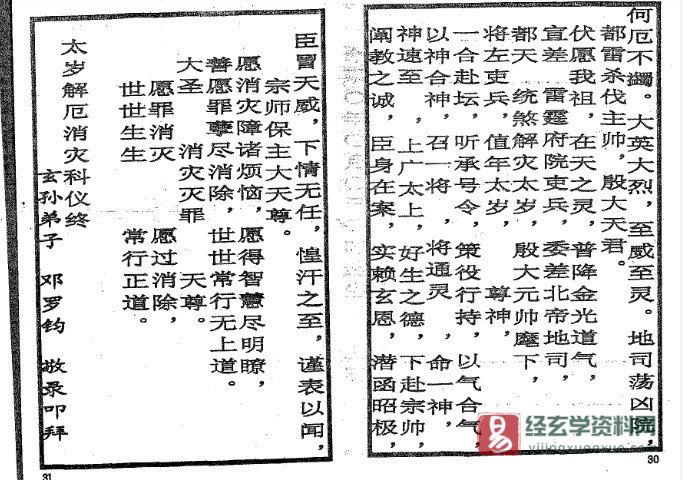 何厄不蠲。大英大烈，至威至灵。地司荡凶院，
都雷杀伐主帅，殷大天君。
伏愿我祖，在天之灵，普降金光道气，
宣差 雷霆府院吏兵，委差北帝地司，
都天 统煞解灾太岁，殷大元帅麾下，
将左吏兵，值年太岁， 尊神，
一合赴坛，听承号令，策役行持，以气合气，
以神合神，召一将，将通灵，命一神，
神速至，上广太上，好生之德，下赴宗帅，
阐教之诚，臣身在案，实赖玄恩，潜函昭极，
30
臣冒天威，下情无任，惶汗之至，谨表以闻，
宗师保主大天尊。
愿消灾障诸烦恼，愿得智慧尽明瞭，
善愿罪孽尽消除，世世常行无上道。
大圣 消灾灭罪 天尊。
愿罪消灭 愿过消除，
世世生生 常行正道。
太岁解厄消灾科仪终
玄孙弟子 邓罗钧 敬录叩拜
31
易 经玄学资料网